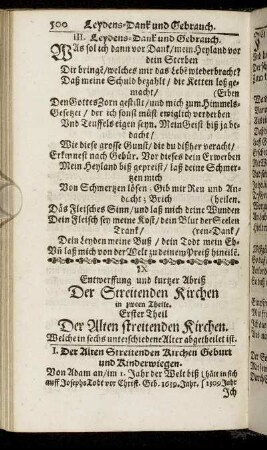 500 Leydens-Danck und Gebrauch.
III. Leydens-Danck und Gebrauch.
WAs sol ich dann vor Danck/ mein Heyland vor
dein Sterben
Dir bringē/ welches mir das Lebē wiederbracht?
Daß meine Schuld bezahlt/ die Ketten loß ge-
macht/ (Erben
Den Gottes Zorn gestillt/ und mich zum Himmels-
Gesetzet/ der ich sonst müst ewiglich verderben
Und Teuffels eigen seyn. Mein Geist biß jtzt be-
dacht/
Wie diese grosse Gunst/ die du bißher veracht/
Erkennest nach Gebür. Vor dieses dein Erwerben
Mein Heyland biß gepreist/ laß deine Schmer-
tzen mich
Von Schmertzen lösen; Gib mir Reu und An-
dacht; Brich (heilen.
Däs Fleisches Sinn/ und laß mich deine Wunden
Dein Fleisch sey meine Kost/ dein Blut der Seelen
Tranck/ (ren-Danck/
Dein Leyden meine Buß/ dein Todt mein Eh-
Vñ laß mich von der Welt zu deinem Preiß hineilē.
IX
Entwerffung und kurtzer Abriß
Der Streitenden Kirchen
in zween Theile.
Erster Theil
Der Alten streitenden Kirchen.
Welche in sechs unterschiedene Alter abgetheilet ist.
I. Der Alten Streitenden Kirchen Geburt
und Kinderwiegen.
Von Adam an/ im 1. Jahr der Welt biß (hält in sich
auff Josephs Todt vor Christ. Geb. 1639. Jahr. [2309. Jahr
Ich